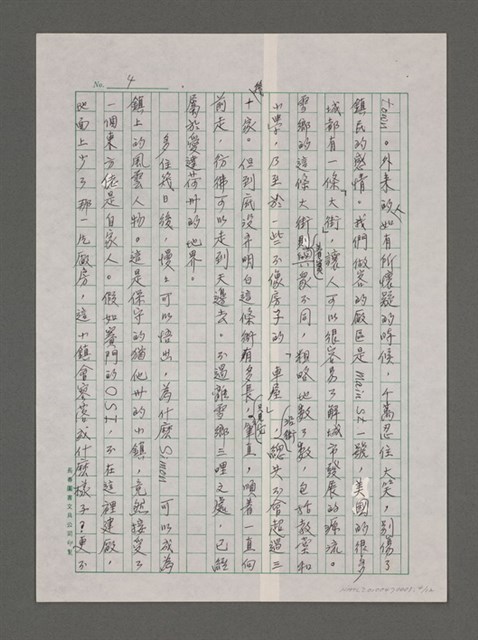 No. 4
Town。外来的人如有所懷疑的時候，千萬忍住大笑，別傷了
鎮民的感情。我們做客的廠區是Main St一號，美國的很多
城都有一條「大街」，讓人可以很容易了解城市發展的源流。
雪鄉的這條大街則與眾不同，粗略地數了數，包括教堂和
小學，乃至於一些不像房子的「車屋」，總共不會超過三
十家。但到底沒弄明白這條街有多長，筆直，順着一直向
前走，彷彿可以走到天邊去。不過離雪鄉三哩之處，已經
屬於愛達荷州的地界。
多住幾日後，慢慢可以悟出，為什麼Simon可以成為
鎮上的風雲人物。這是保守的猶他州的小鎮，竟然接受了
一個東方佬是自家人。假如賽門的OSI，不在這裡建廠，
地面上少了那一片廠房，這小鎮會寥落成什麼樣子？更不